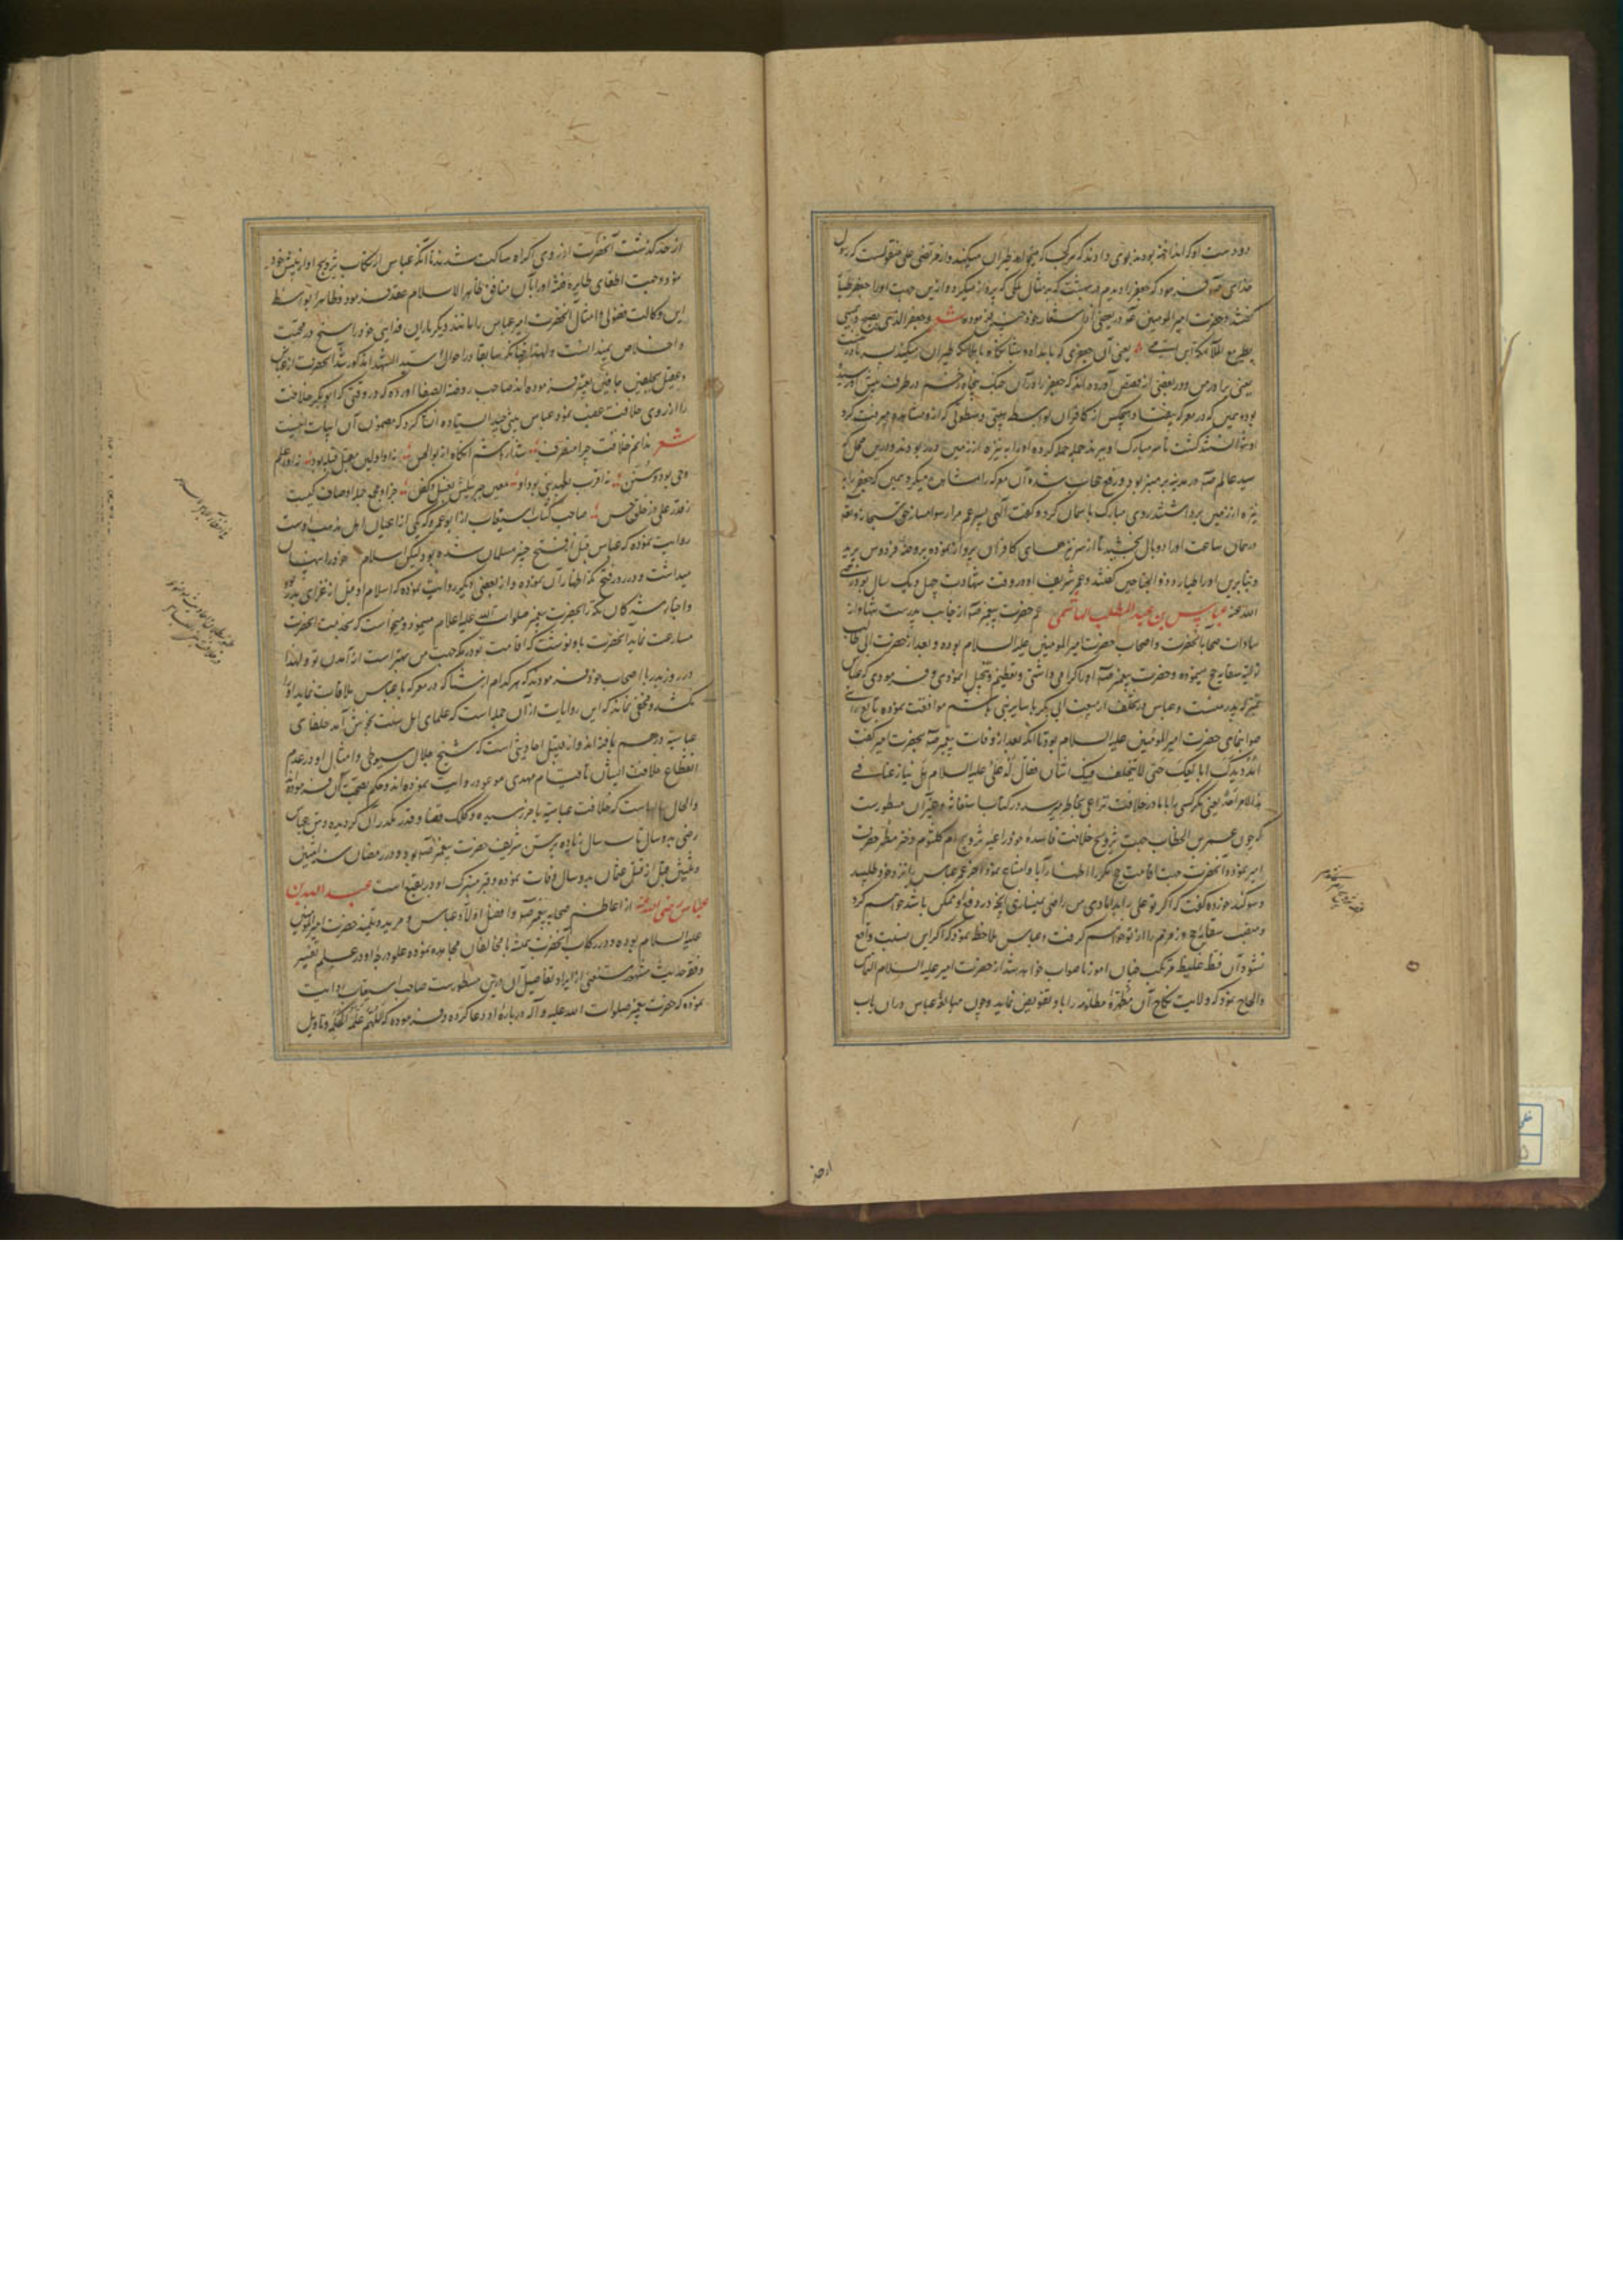 دو دست او که انداخته بودند بوی دادند که هر کجا که میخواهد طیران میکند و از مرتضی علی منقولست که رسول
خدای صلعم فرمود که جعفر را دیدم در بهشت که بر مثال ملکی که پرواز میکرد و ازین جهت او را جعفر طیار
گفتند و حضرت امیر المومنین خود در بعضی از اشعار خود چنین فرموده شعر و جعفر الذی یضحی و یمسی
یطیر مع الملائکة ابن امی یعنی آن جعفری که بامداد و شبانگاه با ملائکه طیران میکند پسر مادر منست
یعنی برادر من و در بعضی از قصص آورده اند که جعفر را در آن جنگ پنجاه زخم در طرف پیش او رسیده
بوده همین که در معرکه بیفتاد و هیچکس از کافران بواسطه هیبتی و سطوتی که از و مشاهده میرفت
سید عالم صلعم در مدینه بر منبر بود و رفع حجاب شده آن معرکه را مشاهده میکرد همین که جعفر را به
نیزه از زمین برداشتند روی مبارک باسمان کرده گفت الهی پسر عم مرا رسوا مساز حق سبحانه و تعالی
در همان ساعت او را دو بال بخشید تا از سر نیزهای کافران پرواز نموده بروضه فردوس پرید
و بنابرین او را طیار و ذو الجناحین گفتند و عمر شریف او در وقت شهادت چهل و یک سال بود رضی
الله عنه عباس بن عبد المطلب الهاشمی عم حضرت پیغمبر صلعم از جانب پدرست
سادات صحابه آنحضرت و اصحاب حضرت امیر المومنین علیه السلام بوده و بعد از حضرت ابی طالب
تولیت سقایه حج مینموده و حضرت پیغمبر صلعم او را گرامی داشتی و تعظیم و تبجیل او نمودی و فرمودی که عباس
عم که پدر منست و عباس در تخلف از بیعت ابی بکر با سایر بنی هاشم موافقت نموده تابع رای
صوابنمای حضرت امیر المومنین علیه السلام بود تا آنکه بعد از وفات پیغمبر صلعم بحضرت امیر گفت
امدد یدک ابایعک حتی لا یتخلف فیک اثنان فقال له علی علیه السلام هل ینازعنا فی
هذا الامر احد یعنی مگر کسی را با ما در خلافت نزاعی بخاطر میرسد و در کتاب استغاثه و غیر آن مسطورست
که چون عمر بن الخطاب جهت ترویج خلافت فاسده خود داعیه تزویج ام کلثوم دختر مطهر حضرت
امیر نموده آنحضرت جهت اقامت حج مکرر اظهار ابا و امتناع نمود آخر عمر عباس را نزد خود طلبید
و سوگند خورده گفت که اگر تو علی را بدامادی من راضی نمیسازی آنچه در دفع او ممکن باشد خواهم کرد
و منصب سقایه حج و زمزم را از تو خواهم گرفت و عباس ملاحظه نمود که اگر این نسبت واقع
نشود آن فظ غلیظ مرتکب چنان امور ناصواب خواهد شد از حضرت امیر علیه السلام التماس
و الحاح نمود که ولایت نکاح آن مطهره مظلومه را باو تفویض نماید و چون مبالغه عباس در آن باب
از حد
از حد گذشت آنحضرت از روی اکراه ساکت شدند تا آنکه عباس ارتکاب تزویج او از پیش خود
نمود و جهت اطفای نایره فتنه او را بآن منافق ظاهر الاسلام عقد فرمود و ظاهرا بواسطه
این وکالت فضولی و امثال آن حضرت امیر عباس را مانند دیگر یاران فدایی خود راسخ در محبت
و اخلاص نمیدانست و لهذا چنانکه سابقا در احوال سید الشهدا مذکور شد آنحضرت از عباس
و عقیل بجلفین جافیین تعبیر فرموده اند صاحب روضة الصفا آورده که در وقتی که ابو بکر خلافت
را از روی خلافت غصب نمود عباس بیتی چند ایستاده انشا کرد که مضمون آن ابیات اینست
شعر ندانم خلافت چرا منصرف شد از هاشم آنگاه از بوالحسن نه او اولین مقبل قبله بود نه او اعلم
وحی بود و سنن نه اقرب بعهد نبی بود و او معین جبرئیلش بغسل و کفن جزاو مجمع جمله اوصاف کیست
ز قدر علی و ز خلق حسن صاحب کتاب استیعاب از ابو عمرو که یکی از اعیان اهل مذهب اوست
روایت نموده که عباس قبل از فتح خیبر مسلمان شده بود لیکن اسلام خود را پنهان
میداشت و در روز فتح مکه اظهار آن نموده و از بعضی دیگر روایت نموده که اسلام او قبل از غزای بدر بود
و اخبار مشرکان مکه را بحضرت پیغمبر صلوات الله علیه اعلام مینمود و میخواست که بخدمت آنحضرت
مسارعت نماید آنحضرت باو نوشت که اقامت تو در مکه جهت من بهتر است از آمدن تو و لهذا
در روز بدر با اصحاب خود فرمودند که هر کدام از شما که در معرکه با عباس ملاقات نماید او را
نکشد و مخفی نماند که این روایات از آن جمله است که علمای اهل سنت بخوش آمد خلفای
عباسیه درهم بافته اند و از قبیل احادیثی است که شیخ جلال سیوطی و امثال او در عدم
انقطاع خلافت ایشان تا قیام مهدی موعود روایت نموده اند و حکم بصحت آن فرموده
و الحال سالهاست که خلافت عباسیه باخر رسیده و کلک قضا و قدر مکدر آن گردیده و سن عباس
رضی بدو سال تا سه سال زیاده بر سن شریف حضرت پیغمبر صلعم بود و در رمضان سنه اثنین
و ثلثین قبل از قتل عثمان بدو سال وفات نموده و قبر متبرک او در بقیع است عبد الله بن
عباس رضی الله عنه از اعاظم صحابه پیغمبر صلعم و افضل اولاد عباس و مرید و تلمیذ حضرت امیر المومنین
علیه السلام بوده و در رکاب آنحضرت همیشه با مخالفان مجاهده نموده علو درجه او در علم تفسیر
و فقه و حدیث مشهور مستغنی از ایراد تفاصیل آن درین مسطورست صاحب استیعاب روایت
نموده که حضرت پیغمبر صلوات الله علیه و آله درباره او دعا کرده و فرموده که اللهم علمه الحکمة و تاویل